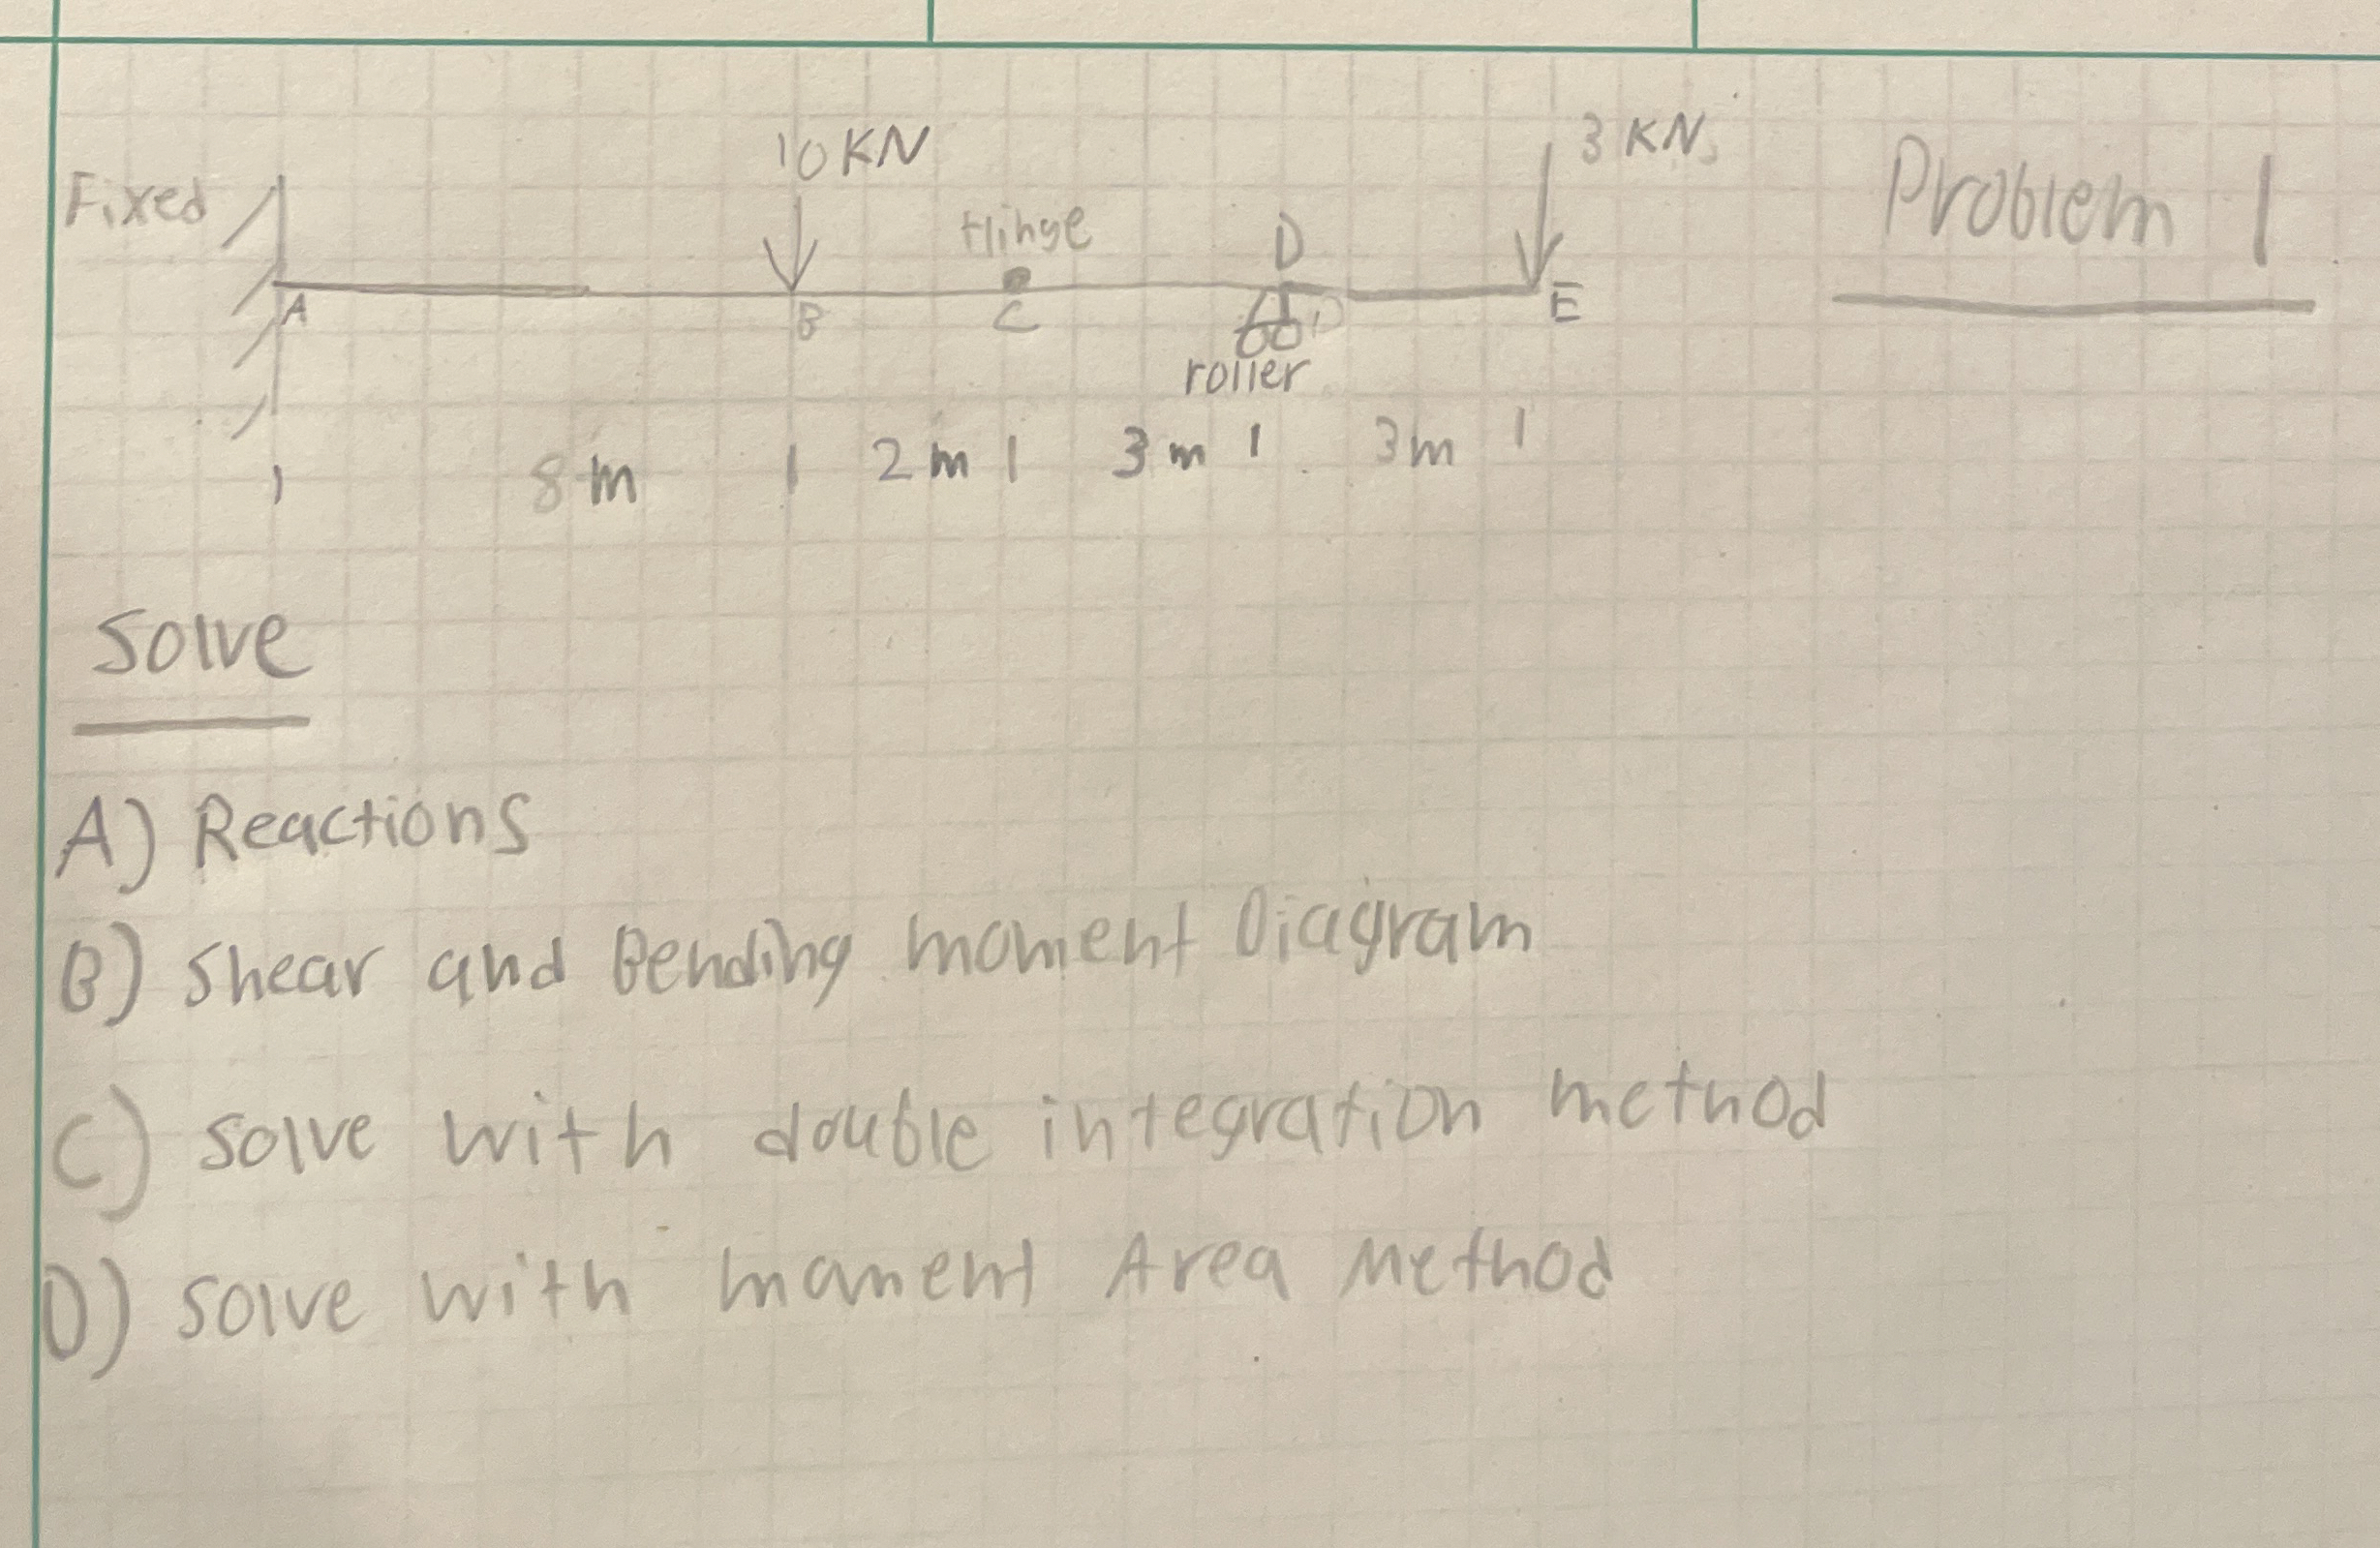 10 KN
3 KN
Problem 1
Fixed
Hinge
D
A
B
C
E
roller
8 m
2 m
3 m
3 m
Solve
A) Reactions
B) Shear and Bending moment Diagram
C) Solve with double integration method
D) Solve with moment Area Method